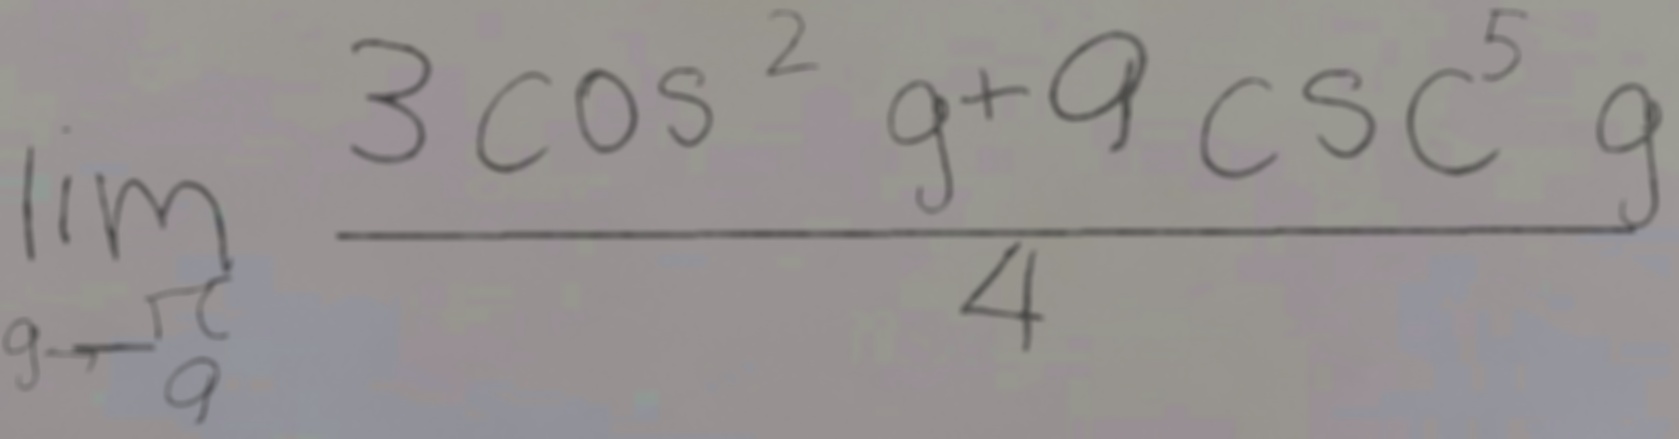 \lim_{g \to \frac{\pi}{9}} \frac{3\cos^2 g + 9\csc^5 g}{4}